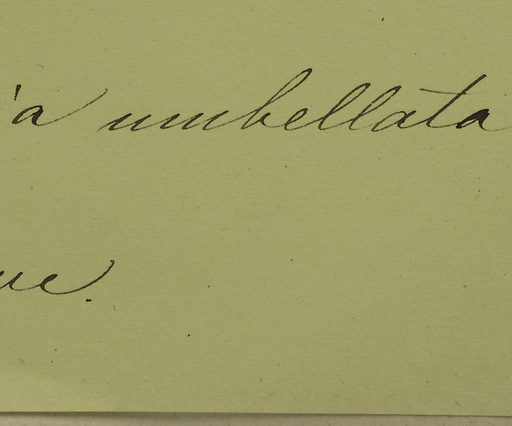 'a umbellata
ue.